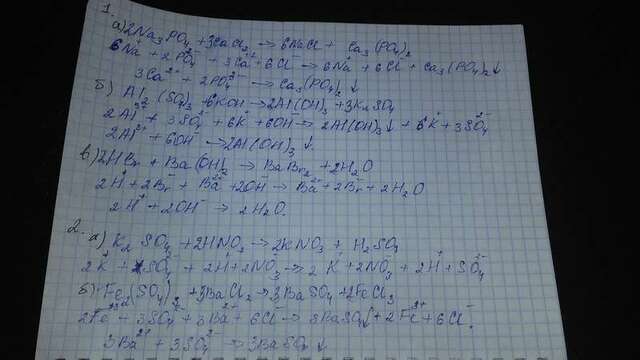 1.
а) 2Na₃PO₄ + 3CaCl₂ → 6NaCl + Ca₃(PO₄)₂
6Na⁺ + 2PO₄³⁻ + 3Ca²⁺ + 6Cl⁻ → 6Na⁺ + 6Cl⁻ + Ca₃(PO₄)₂↓
3Ca²⁺ + 2PO₄³⁻ → Ca₃(PO₄)₂↓
б) Al₂(SO₄)₃ + 6KOH → 2Al(OH)₃ + 3K₂SO₄
2Al³⁺ + 3SO₄²⁻ + 6K⁺ + 6OH⁻ → 2Al(OH)₃↓ + 6K⁺ + 3SO₄²⁻
2Al³⁺ + 6OH⁻ → 2Al(OH)₃↓.
в) 2HBr + Ba(OH)₂ → BaBr₂ + 2H₂O
2H⁺ + 2Br⁻ + Ba²⁺ + 2OH⁻ → Ba²⁺ + 2Br⁻ + 2H₂O
2H⁺ + 2OH⁻ → 2H₂O.
2. а) K₂SO₄ + 2HNO₃ → 2KNO₃ + H₂SO₄
2K⁺ + SO₄²⁻ + 2H⁺ + 2NO₃⁻ → 2K⁺ + 2NO₃⁻ + 2H⁺ + SO₄²⁻
б) Fe₂(SO₄)₃ + 3BaCl₂ → 3BaSO₄ + 2FeCl₃
2Fe³⁺ + 3SO₄²⁻ + 3Ba²⁺ + 6Cl⁻ → 3BaSO₄↓ + 2Fe³⁺ + 6Cl⁻.
3Ba²⁺ + 3SO₄²⁻ → 3BaSO₄↓